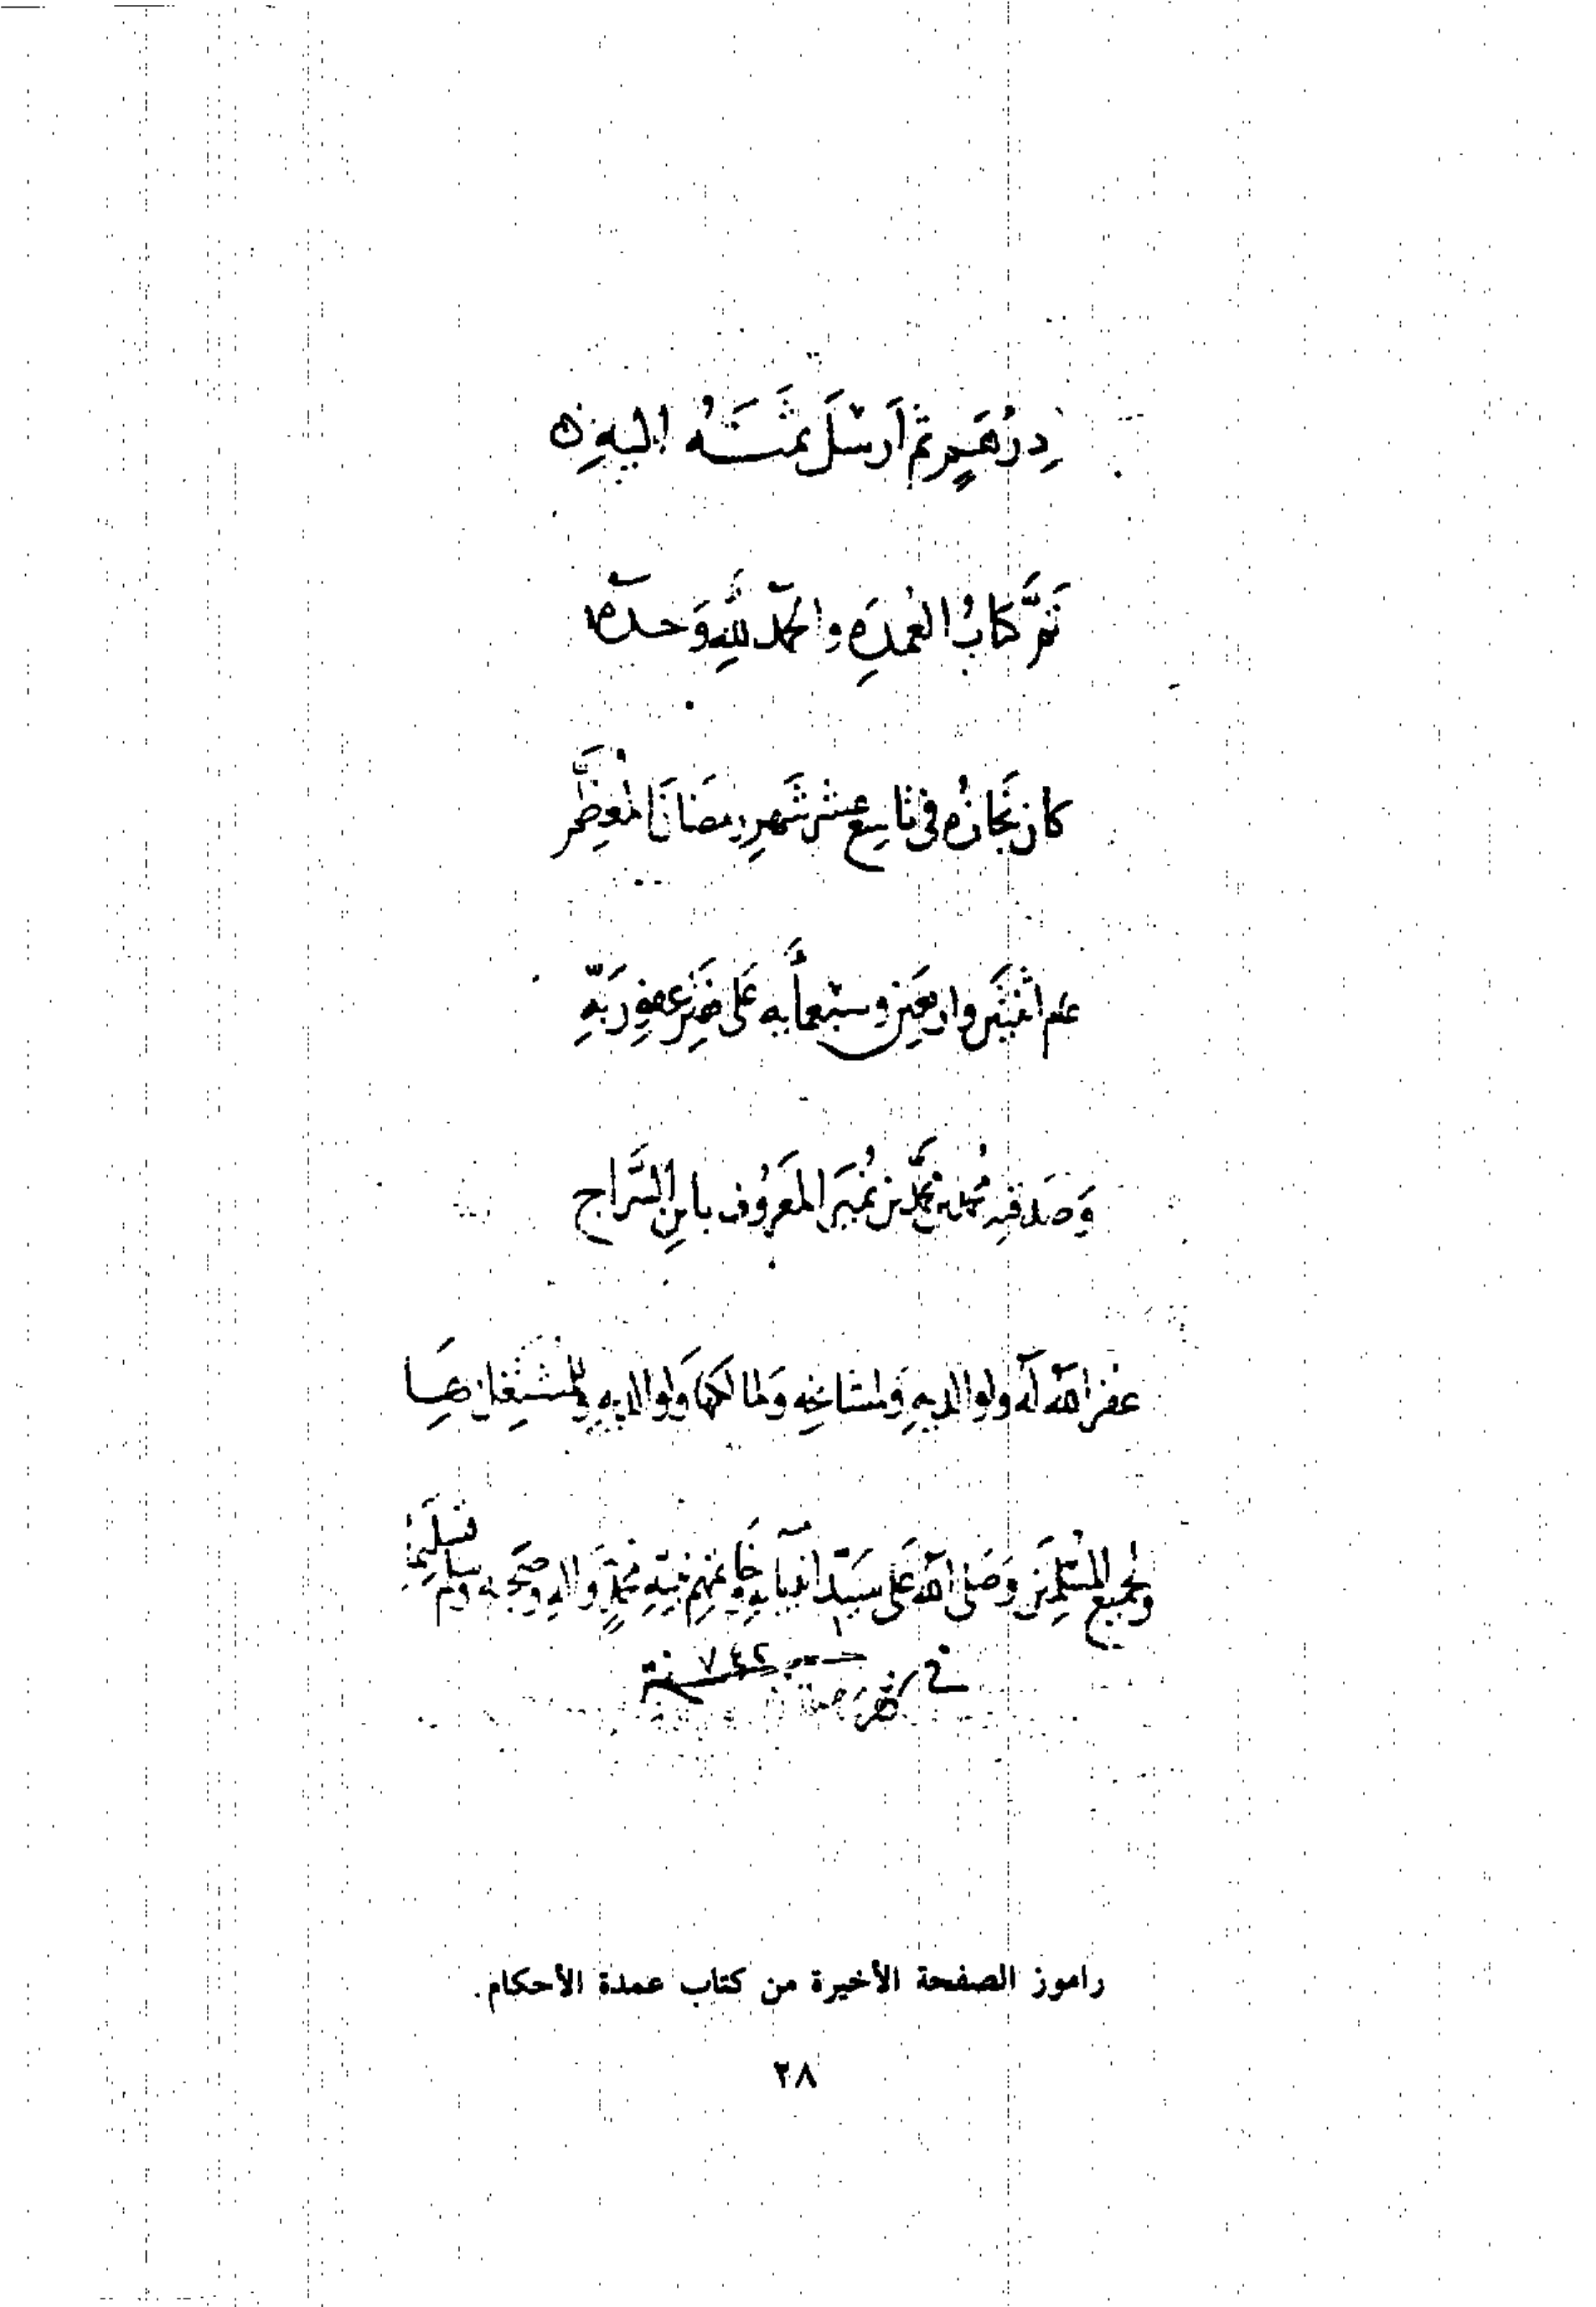 دِرْهَمٍ ثم اَرْسَلَ بثَمَنَهُ اليهِ ه
تَمَّ كتابُ العُمدَةِ والحمدُ للهِ وَحدَه
كان نَجازُه في تاسع عشر شَهرِ رمضانَ المُعظَّم
عام اثنينَ واربعين وسبعمأيه عَلى
عفوِ رَبِّهِ
وَصَدقتِه محمد بن محمَّد بن نُمَير المَعرُوف بابنِ السَّرَاج
غفر الله لَه ولوالديهِ وَلمشايخِه وَلمالكها وَلوالديهِ وللمشتغلين بها
ولجميع المُسْلمِينَ وَصَلى الله عَلى سَيّد انبيآيه وخَاتمهِم نبيّهِ محمَّدٍ وَالهِ وصَحبه وسلم تسليمًا
في شهر رمضان سنة ٧٤٢
راموز الصفحة الأخيرة من كتاب عمدة الأحكام.
٢٨